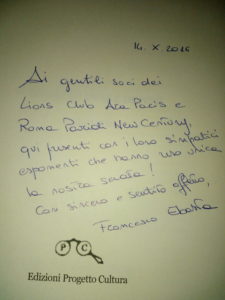 14. X 2016
Ai gentili soci dei
Lions Club Ara Pacis e
Roma Parioli New Century,
qui presenti con i loro simpatici
esponenti che hanno reso unica
la nostra serata!
Con sincero e sentito affetto,
Francesco
P C
Edizioni Progetto Cultura